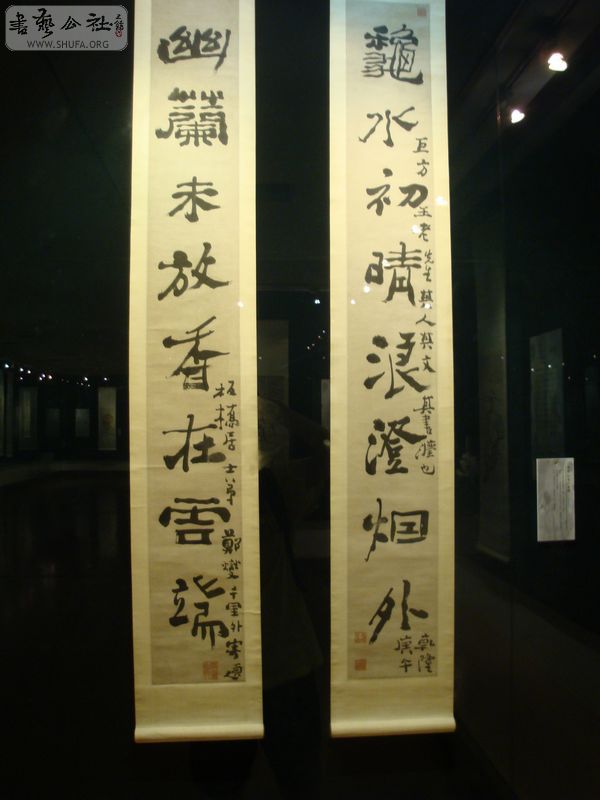 書藝公社
WWW.SHUFA.ORG
龝水初晴浪澄烟外
巨方王老先生與人與文其書灋也
乾隆
庚午
幽蘭未放香在雲端
板橋居士弟鄭燮千里外寄